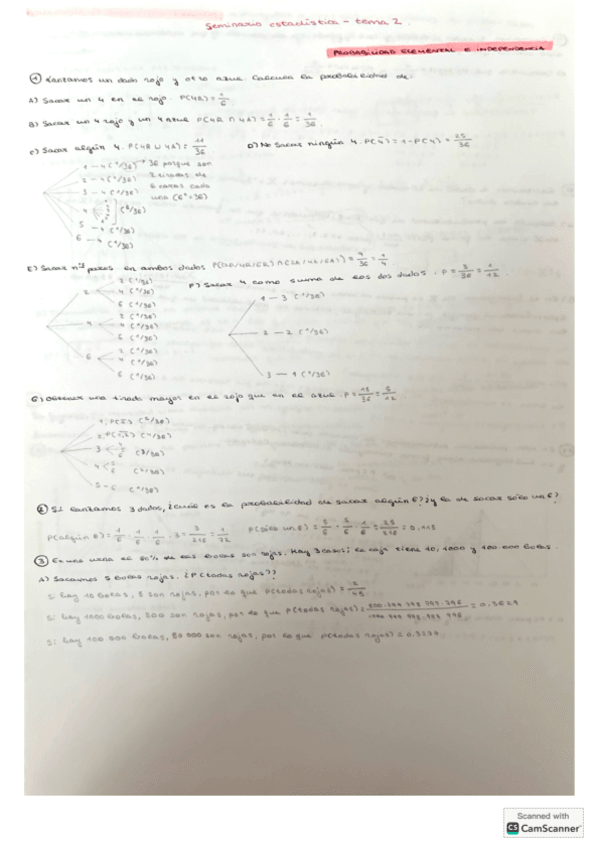 Seminario estadística - tema 2.
PROBABILIDAD ELEMENTAL E INDEPENDENCIA
① Lanzamos un dado rojo y otro azul. Calcula la probabilidad de:
A) Sacar un 4 en el rojo. P(4R) = 1/6
B) Sacar un 4 rojo y un 4 azul P(4R ∩ 4A) = 1/6 · 1/6 = 1/36
C) Sacar algún 4. P(4R ∪ 4A) = 11/36
D) No sacar ningún 4. P(4̄) = 1 - P(4) = 25/36
1 — 4 (1/36) → 36 porque son
2 — 4 (1/36) 2 tiradas de
3 — 4 (1/36) 6 caras cada
4 (6/36) una (6² = 36)
5 — 4 (1/36)
6 — 4 (1/36)
E) Sacar nº pares en ambos dados P(2R/4R/6R) ∩ (2A/4A/6A)) = 9/36 = 1/4
2 2 (1/36)
4 (1/36)
6 (1/36)
4 2 (1/36)
4 (1/36)
6 (1/36)
6 2 (1/36)
4 (1/36)
6 (1/36)
F) Sacar 4 como suma de los dos dados. P = 3/36 = 1/12
1 — 3 (1/36)
2 — 2 (1/36)
3 — 1 (1/36)
G) Obtener una tirada mayor en el rojo que en el azul. P = 15/36 = 5/12
② Si lanzamos 3 dados, ¿cuál es la probabilidad de sacar algún 6? ¿y la de sacar sólo un 6?
P(algún 6) = 1/6 · 1/6 · 1/6 · 3 = 3/216 = 1/72
P(sólo un 6) = 5/6 · 5/6 · 1/6 = 25/216 = 0,115
③ En una urna el 80% de las bolas son rojas. Hay 3 casos; la caja tiene 10, 1000 y 100.000 bolas.
A) Sacamos 5 bolas rojas. ¿P(todas rojas)?
Si hay 10 bolas, 8 son rojas, por lo que P(todas rojas) =
Si hay 1000 bolas, 800 son rojas, por lo que P(todas rojas) =
Si hay 100 000 bolas, 80 000 son rojas, por lo que P(todas rojas) =
Scanned with
CS CamScanner